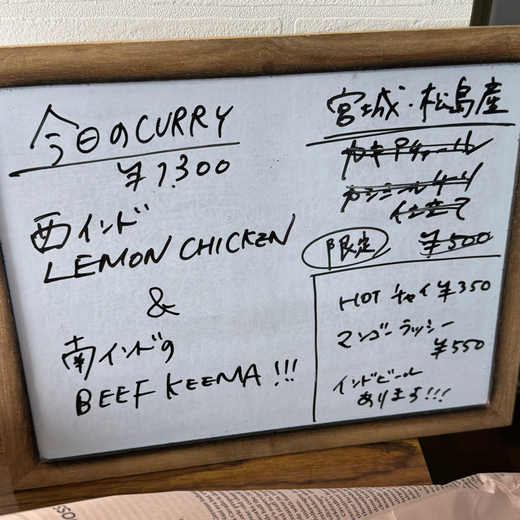 今日のCURRY
¥1300
西インド
LEMON CHICKEN
&
南インドの
BEEF KEEMA!!!
宮城・松島産
カキアチャール
カシミールチリ
仕立て
限定 ¥500
HOT チャイ ¥350
マンゴーラッシー
¥550
インドビール
あります!!!